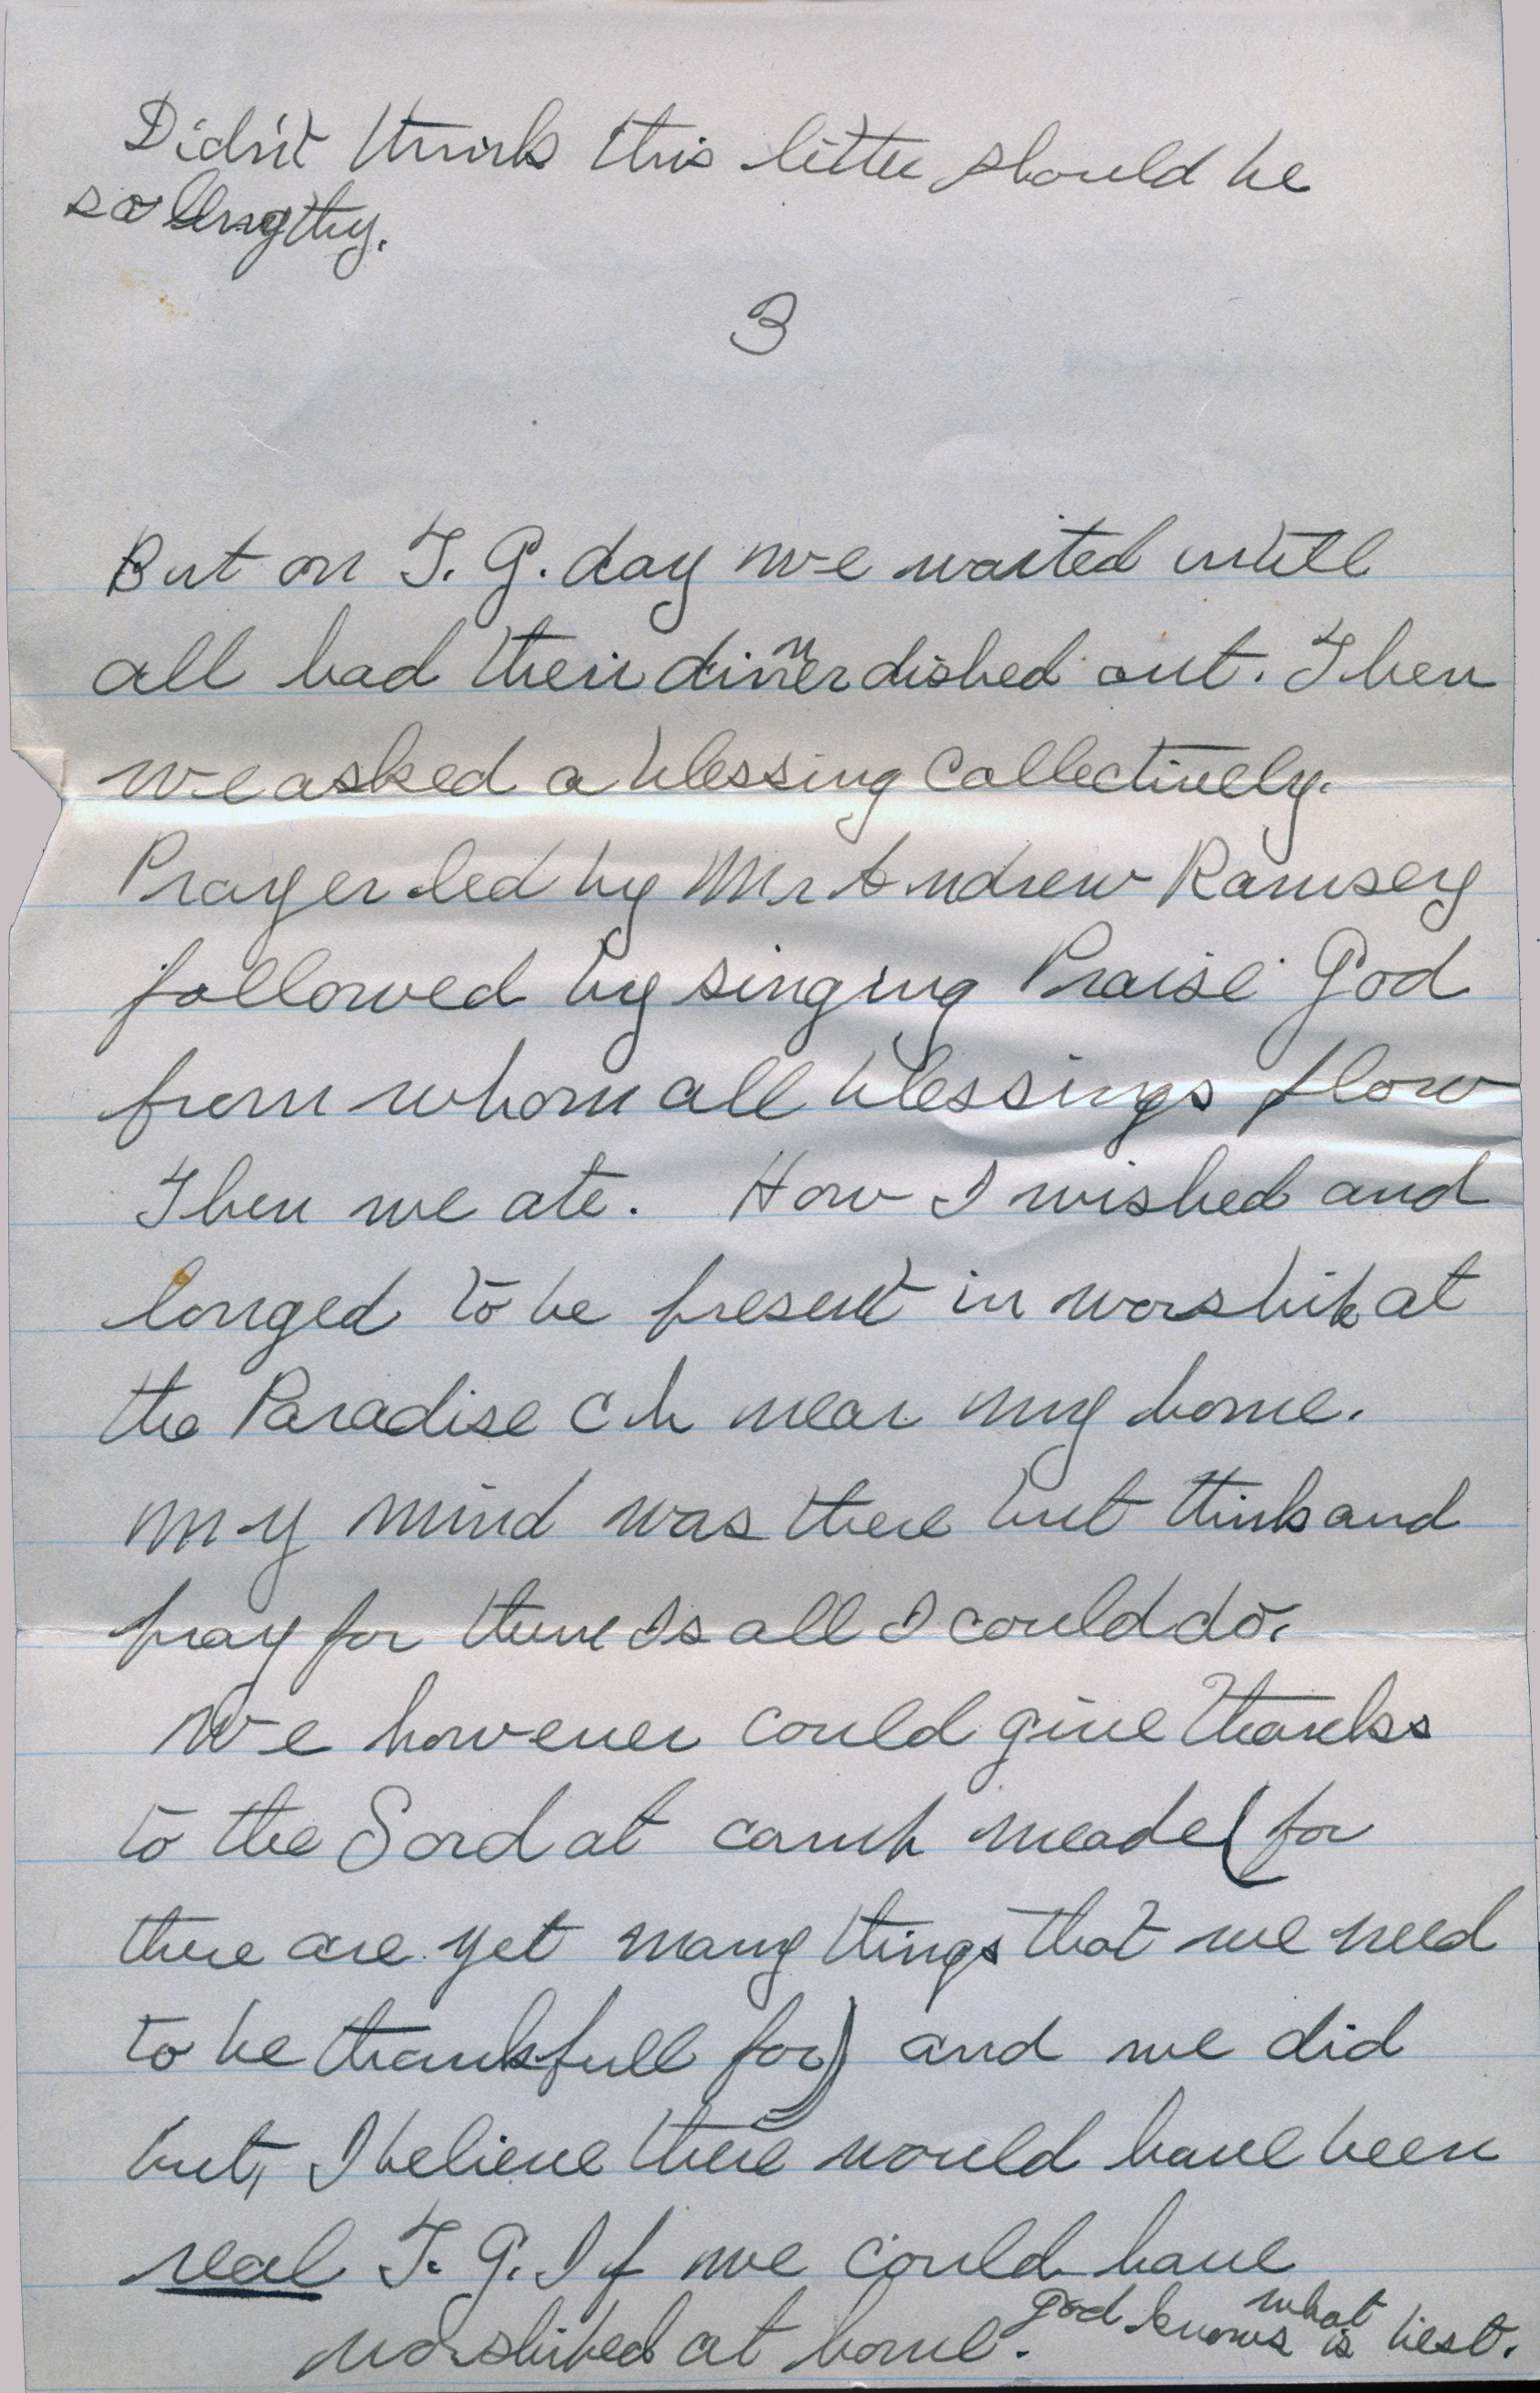 Didn't think this letter should be
so lengthy.
3
But on T. G. day we waited untill
all had their dinner dished out. Then
we asked a blessing collectively.
Prayer led by Mr Andrew Ramsey
followed by singing Praise God
from whom all blessings flow
Then we ate. How I wished and
longed to be present in worship at
the Paradise ch near my home.
my mind was there but think and
pray for them Is all I could do.
We however could give thanks
to the Lord at camp meade (for
there are yet many things that we need
to be thankfull for) and we did
but, I believe there would have been
real T. G. If we could have
worshiped at home. God knows what is best.